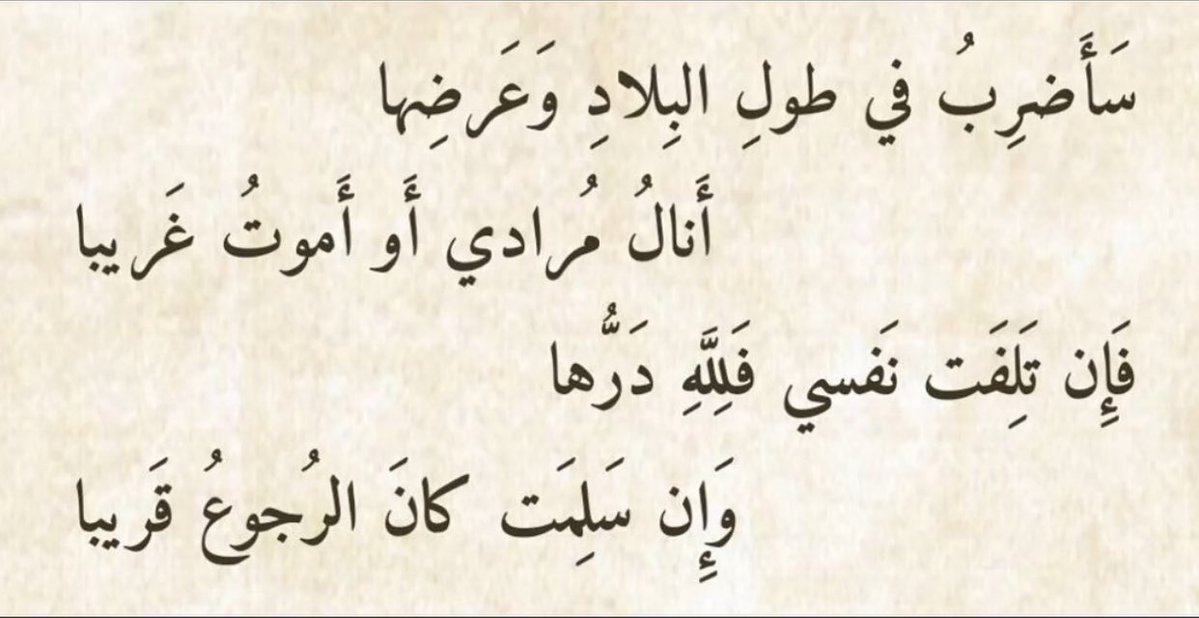 سَأَضرِبُ في طولِ البِلادِ وَعَرضِها
أَنالُ مُرادي أَو أَموتُ غَريبا
فَإِن تَلِفَت نَفسي فَلِلَّهِ دَرُّها
وَإِن سَلِمَت كانَ الرُجوعُ قَريبا